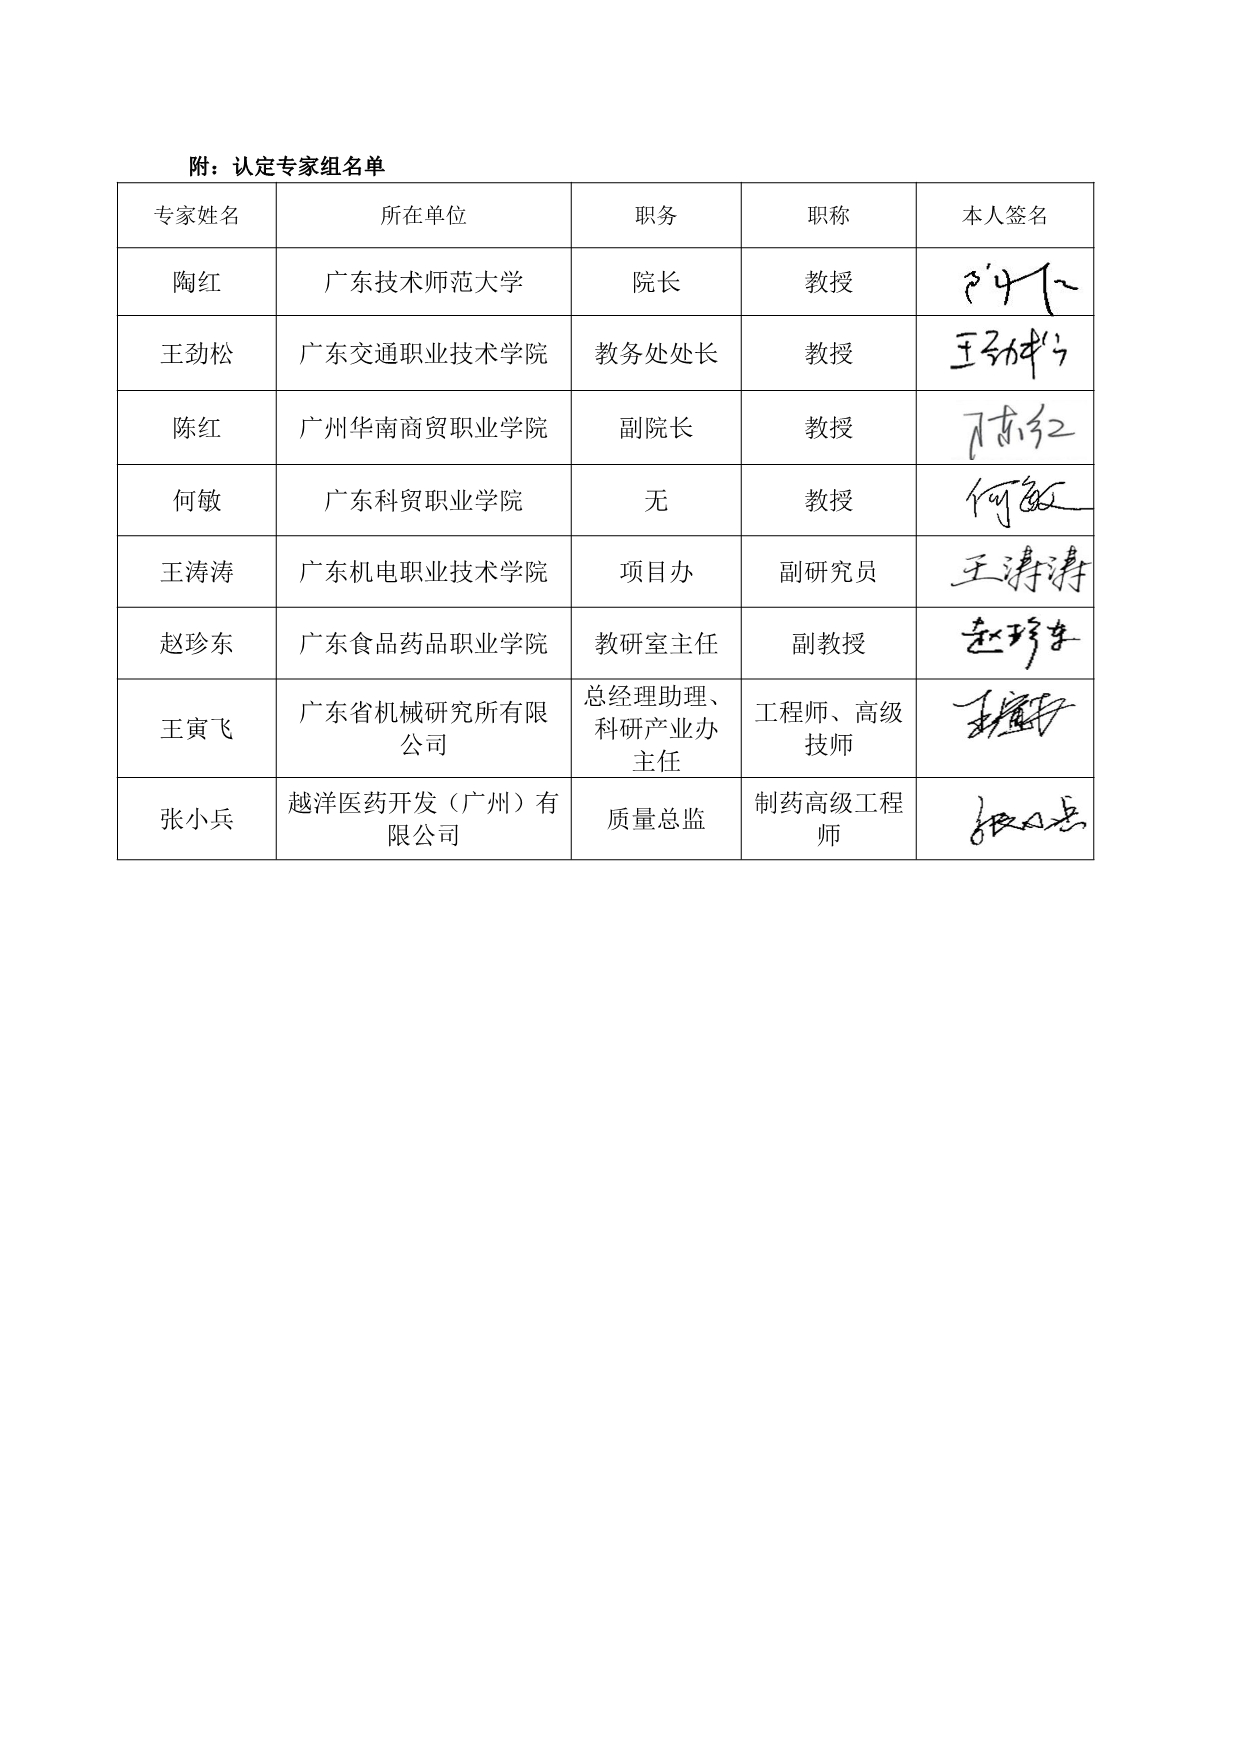 附：认定专家组名单
专家姓名 所在单位 职务 职称 本人签名
陶红 广东技术师范大学 院长 教授
王劲松 广东交通职业技术学院 教务处处长 教授 王劲松
陈红 广州华南商贸职业学院 副院长 教授 陈红
何敏 广东科贸职业学院 无 教授 何敏
王涛涛 广东机电职业技术学院 项目办 副研究员 王涛涛
赵珍东 广东食品药品职业学院 教研室主任 副教授 赵珍东
王寅飞 广东省机械研究所有限
公司 总经理助理、
科研产业办
主任 工程师、高级
技师
张小兵 越洋医药开发（广州）有
限公司 质量总监 制药高级工程
师 张小兵